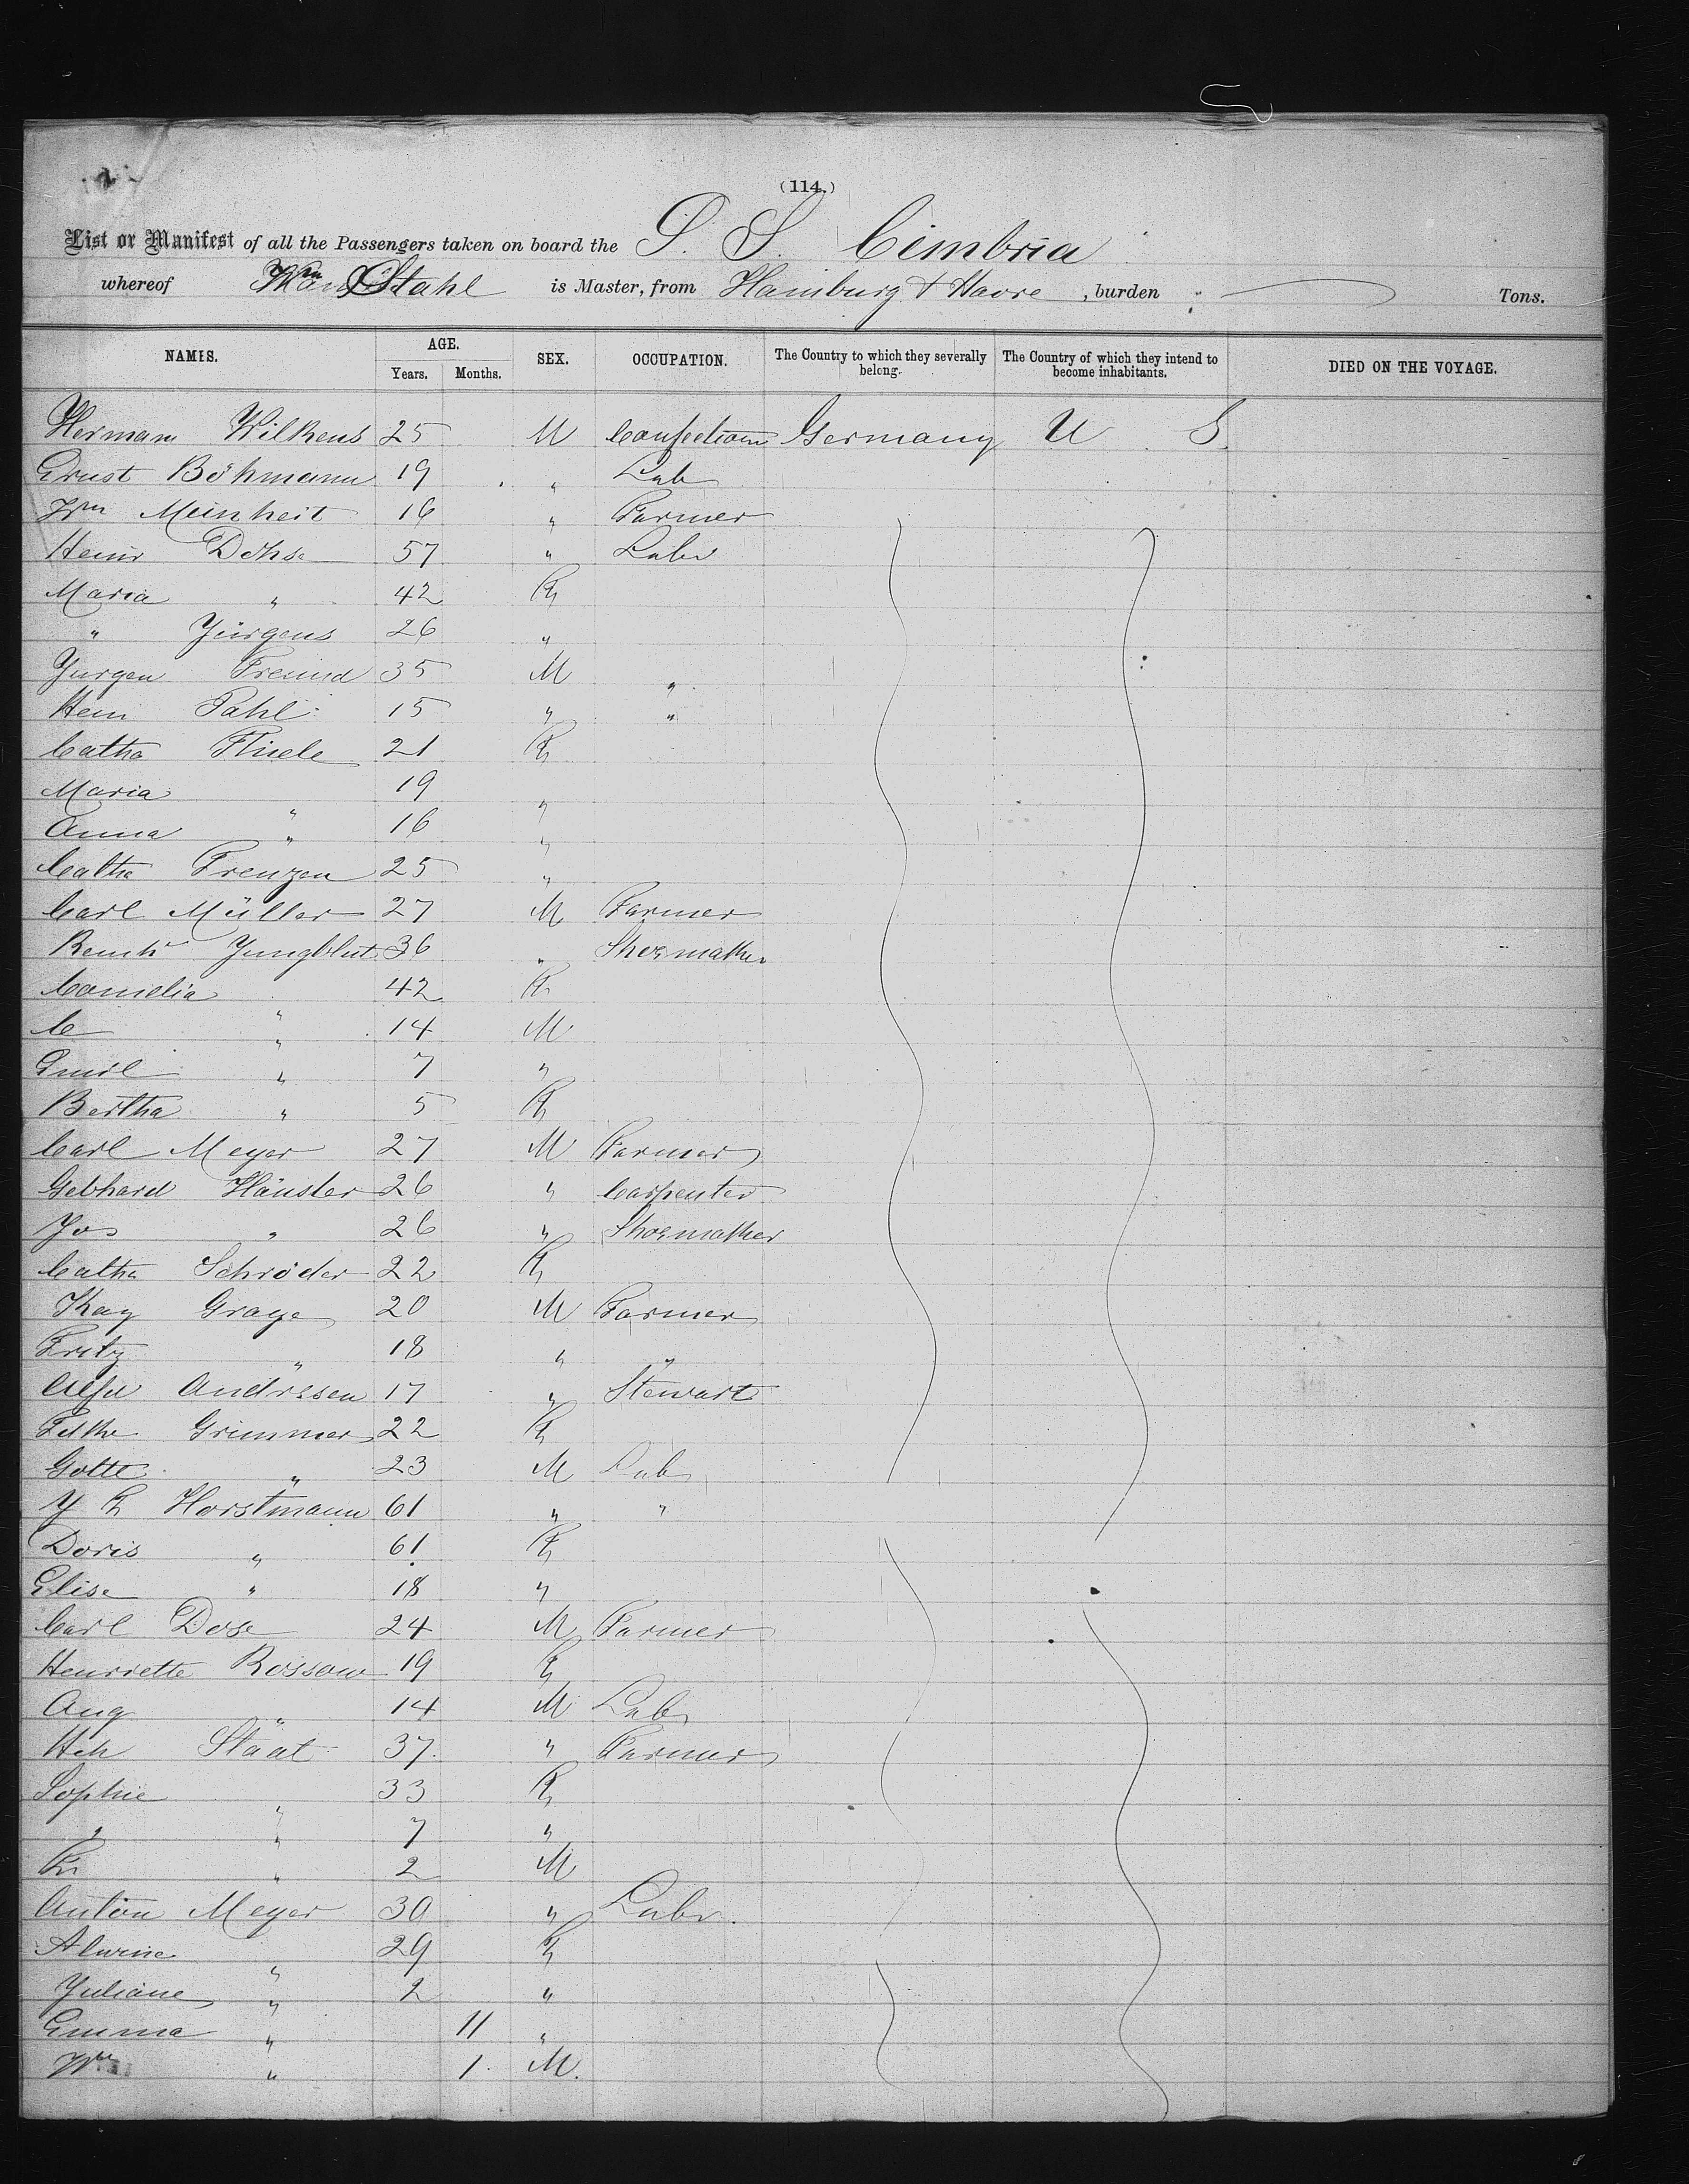 (114.)
List or Manifest of all the Passengers taken on board the S. S. Cimbria
whereof Stahl is Master, from Hamburg & Havre , burden Tons.
NAMES. AGE. SEX. OCCUPATION. The Country to which they severally belong. The Country of which they intend to become inhabitants. DIED ON THE VOYAGE.
Years. Months.
Hermann Wilkens 25 M Germany U S
Ernst Böhmann 19 " Lab
Wm Meinheit 16 " Farmer
Heinr Dohse 57 " Labr
Maria " 42 F
" Jürgens 26 "
Jurgen Freund 35 M "
Hein Pahl 15 " "
Catha Thiele 21 F
Maria " 19 "
Anna " 16 "
Catha Frenzen 25 "
Carl Müller 27 M Farmer
Reinhr Jungblut 36 " Shoemaker
Cornelia " 42 F
C " 14 M
Emil " 7 "
Bertha " 5 F
Carl Meyer 27 M Farmer
Gebhard Hänsler 26 " Carpenter
Jos " 26 " Shoemaker
Catha Schröder 22 F
Kay Graye 20 M Farmer
Fritz " 18 " "
Andresen 17 " Stewart
Grimmer 22 F
Gotte " 23 M Lab
J F Horstmann 61 " "
Doris " 61 F
Elise " 18 "
Carl Dose 24 M Farmer
Henriette Rossow 19 F
Aug " 14 M Lab
Hch Stäat 37 " Farmer
Sophie " 33 F
" " 7 "
Fr " 2 M
Anton Meyer 30 " Labr.
Alwine " 29 F
Juliane " 2 "
Emma " 11 "
Wm " 1 M.